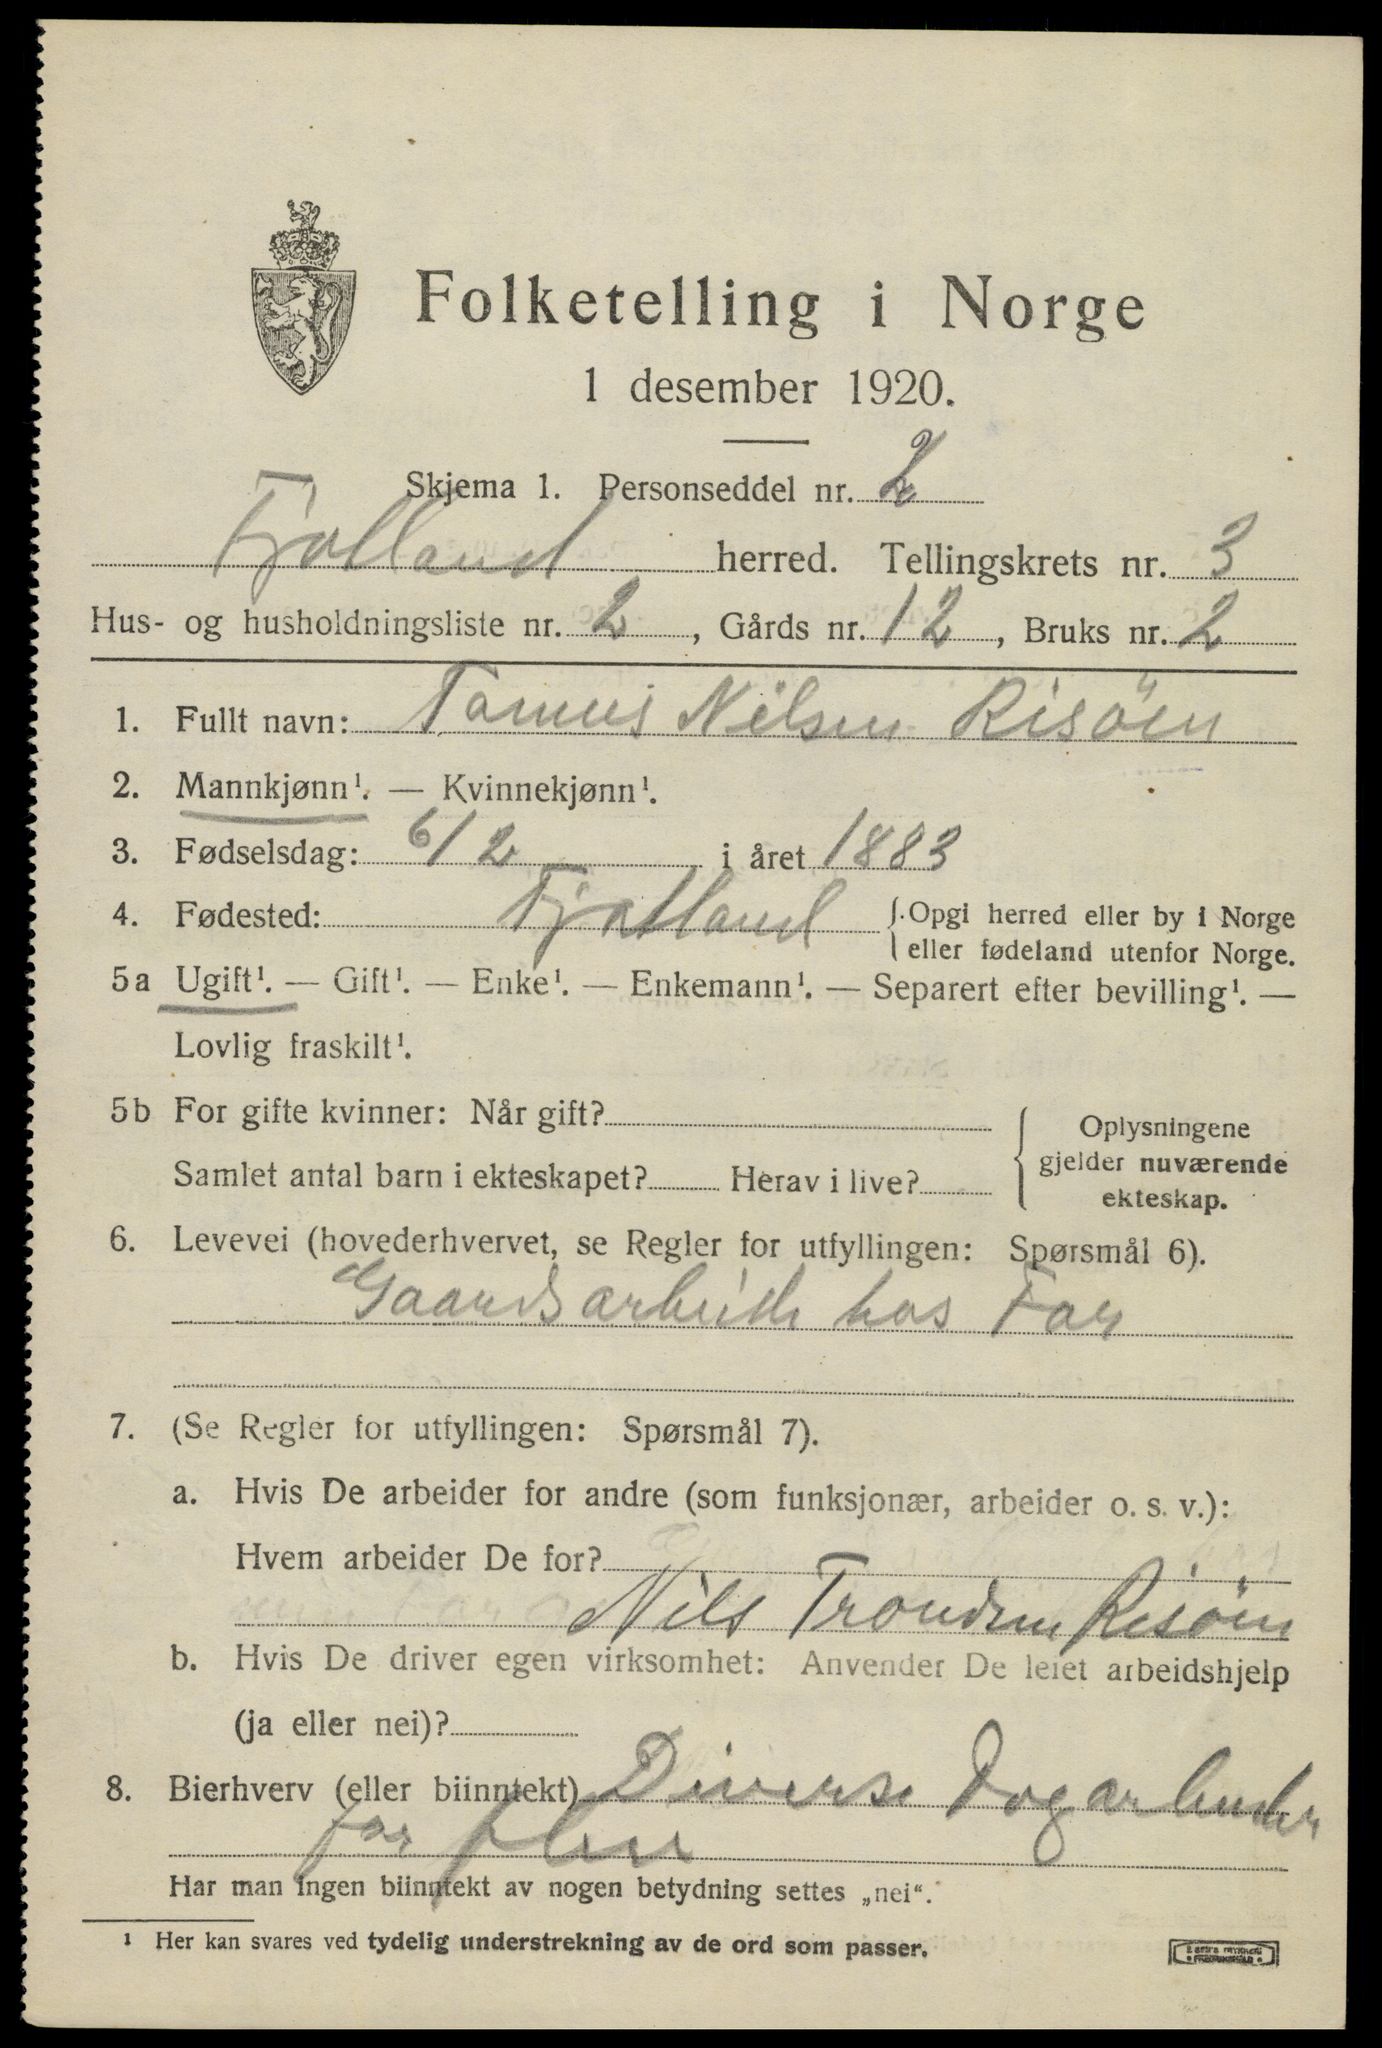 Folketelling i Norge
1 desember 1920.
Skjema 1. Personseddel nr. 2
Fjotland herred. Tellingskrets nr. 3
Hus- og husholdningsliste nr. 2, Gårds nr. 12, Bruks nr. 2
1. Fullt navn: Tomas Nilsen Risöen
2. Mannkjønn¹. — Kvinnekjønn¹.
3. Fødselsdag: 6/2 i året 1883
4. Fødested: Fjotland {Opgi herred eller by i Norge
eller fødeland utenfor Norge.
5a Ugift¹. — Gift¹. — Enke¹. — Enkemann¹. — Separert efter bevilling¹. —
Lovlig fraskilt¹.
5b For gifte kvinner: Når gift?
Samlet antal barn i ekteskapet? Herav i live?
Oplysningene
gjelder nuværende
ekteskap.
6. Levevei (hovederhvervet, se Regler for utfyllingen: Spørsmål 6).
Gaardsarbeide hos Far
7. (Se Regler for utfyllingen: Spørsmål 7).
a. Hvis De arbeider for andre (som funksjonær, arbeider o. s. v.):
Hvem arbeider De for?
Nils Trondsen Risöen
b. Hvis De driver egen virksomhet: Anvender De leiet arbeidshjelp
(ja eller nei)?
8. Bierhverv (eller biinntekt) Diverse Dagarbeider
for flere
Har man ingen biinntekt av nogen betydning settes „nei".
¹ Her kan svares ved tydelig understrekning av de ord som passer.